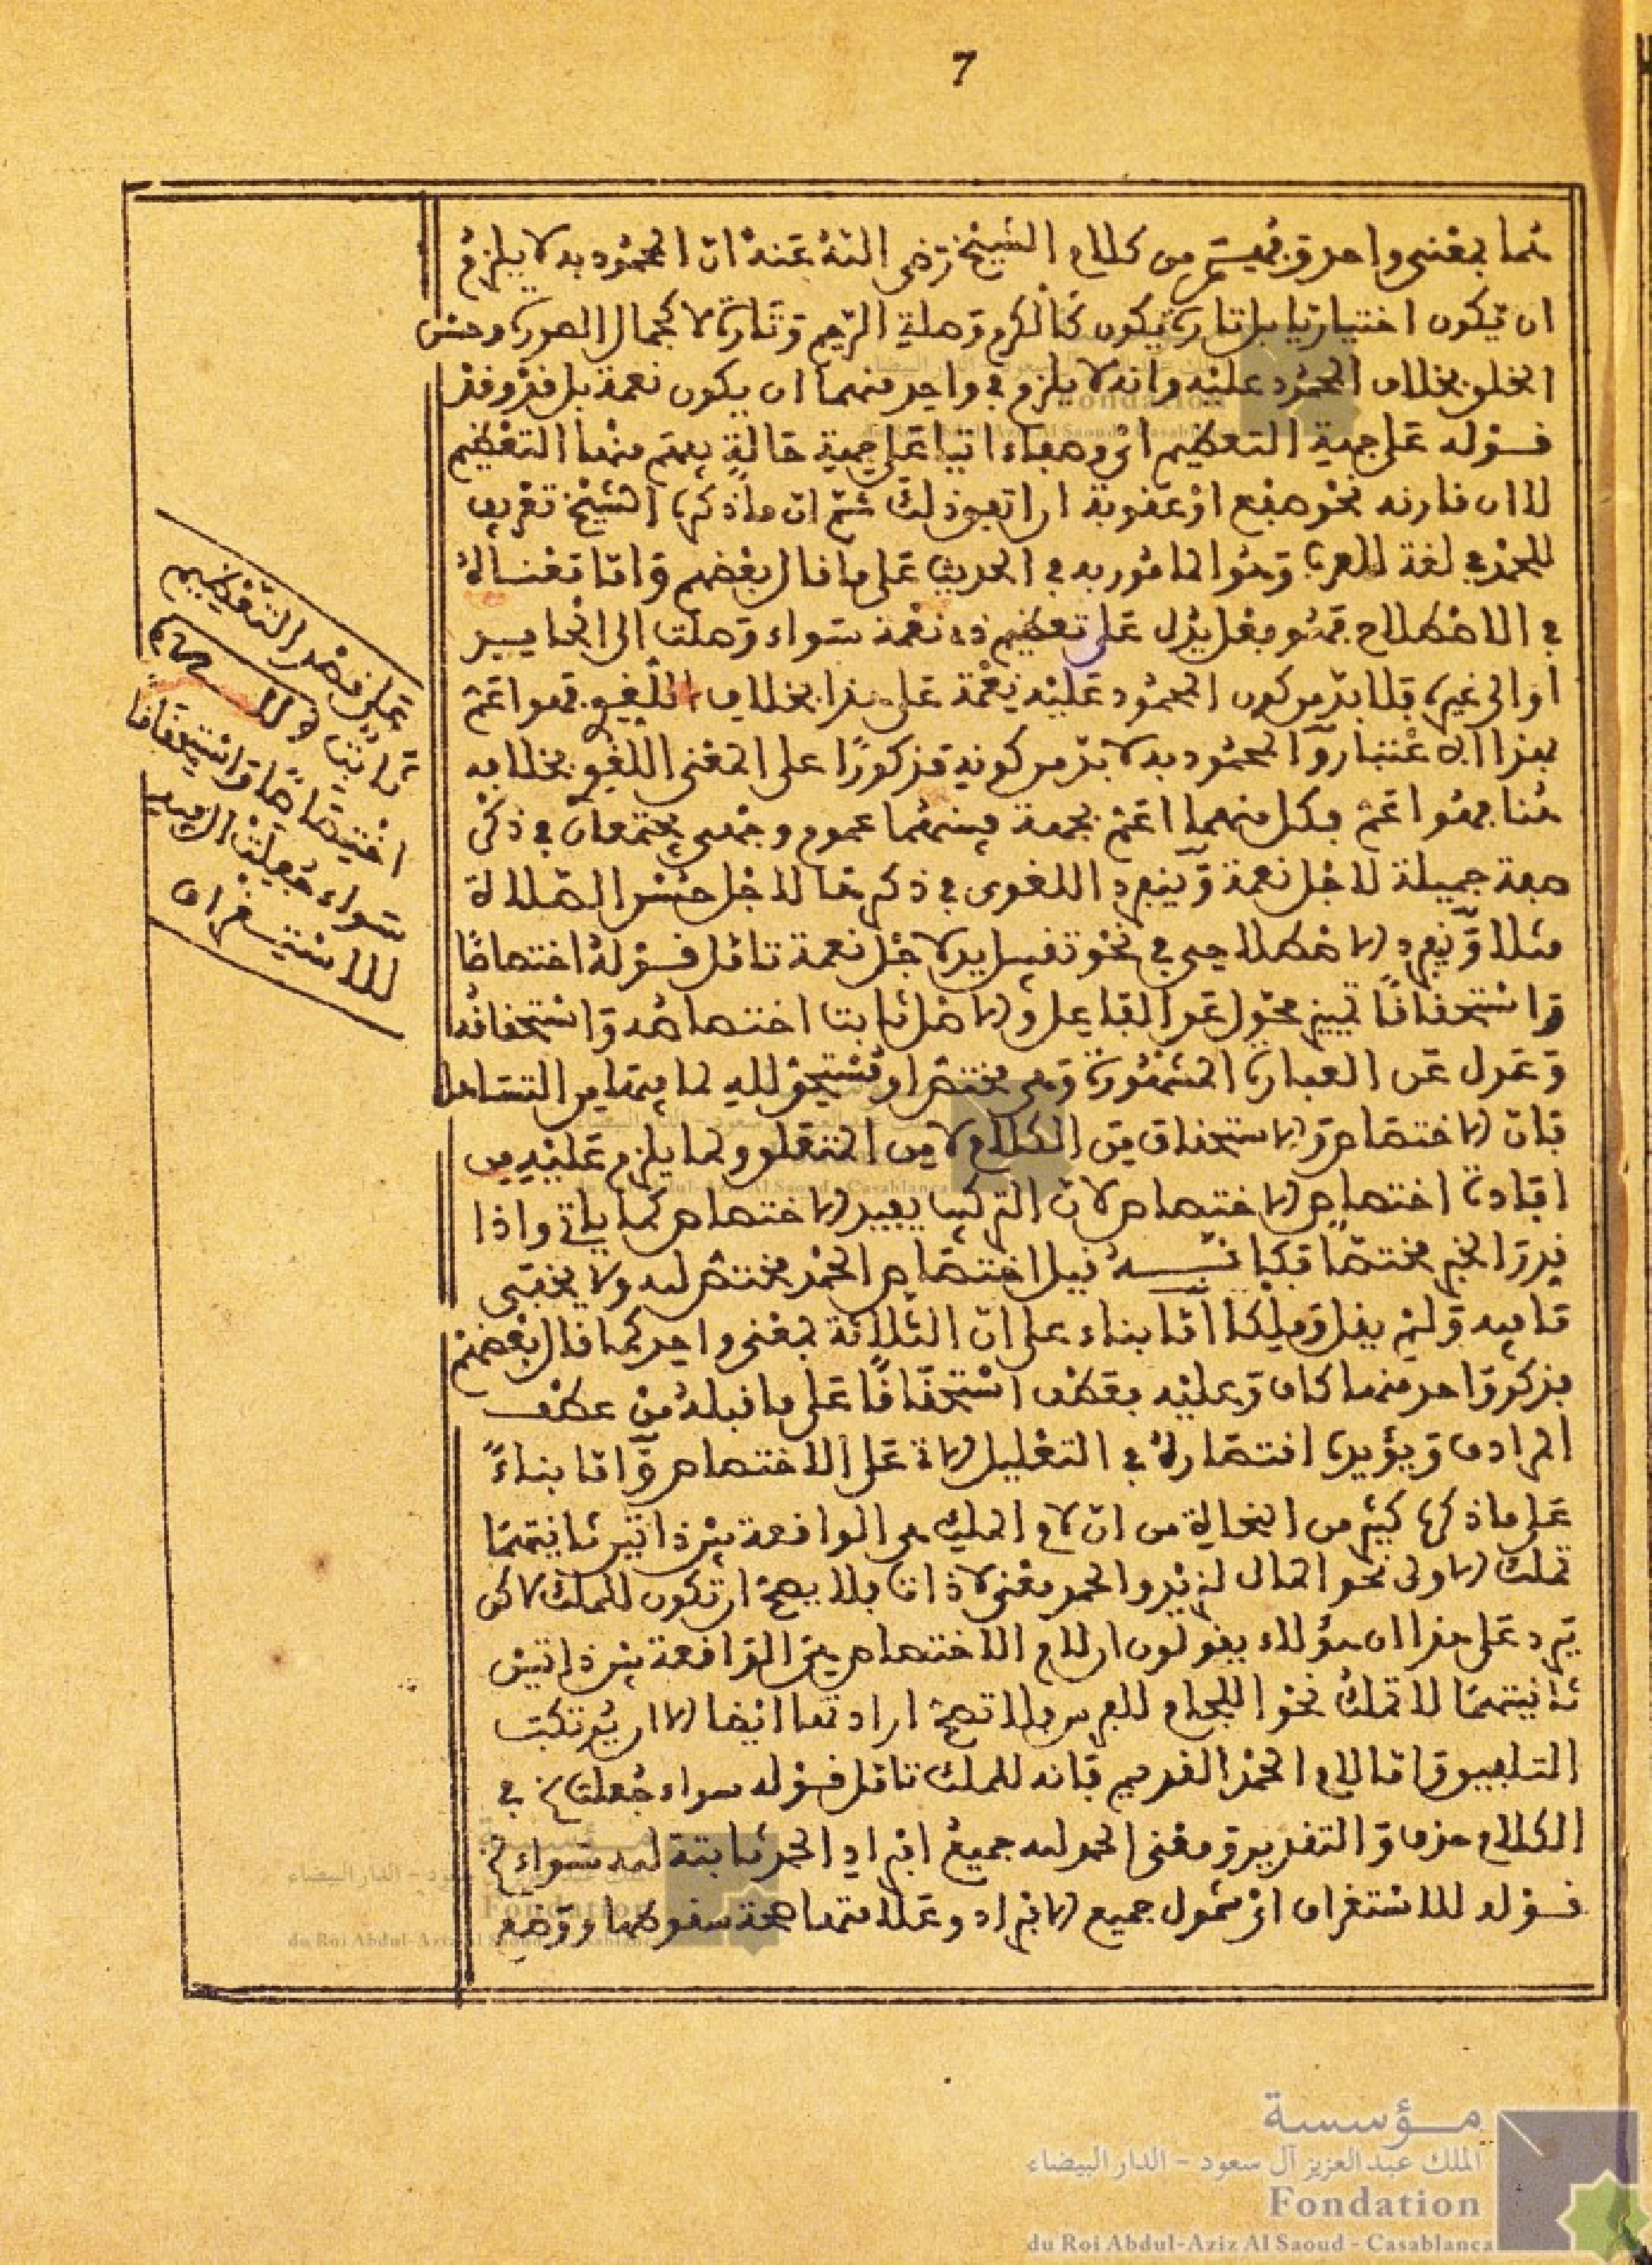 7
هما بمعنى واحد وفهم من كلام الشيخ رضى الله عنه ان المحمود به لا يلزم
ان يكون اختياريا بل تارة يكون كالكرم وصلة الرحم وتارة لا كجمال الصورة وحسن
الخلق بخلاف المحمود عليه وانه لا يلزم في واحد منهما ان يكون نعمة بل قد وقد
قوله على جهة التعظيم اى وصفاء اتيا على جهة حالة يفهم منها التعظيم
لا ان قارنه نحو صفع او عقوبة اراتعبوذلك ثم ان ما ذكره الشيخ تعريف
للحمد في لغة العرب وهو المامور به في الحديث على ما قال بعضهم واما معناه
في الاصطلاح فهو فعل يدل على تعظيم ذى نعمة سواء وصلت الى الحامد
او الى غيره فلا بد من كون المحمود عليه نعمة على هذا بخلاف اللغوى فهو اعم
بهذا الاعتبار والمحمود به لا بد من كونه مذكورا على المعنى اللغوى بخلافه
هنا فهو اعم فكل منهما اعم بجهة فبينهما عموم وجهى يجتمعان في ذكر
صفة جميلة لاجل نعمة وينفرد اللغوى في ذكرها لاجل حسن الصلاة
مثلا وينفرد الاصطلاحى في نحو تقبيل يد لاجل نعمة تامل قوله اختصاصا
واستحقاقا تمييز محول عن الفاعل والاصل ثابت اختصاصه واستحقاقه
وعدل عن العبارة المشهورة وهى مختص او مستحق لله لما فيها من التساهل
فان الاختصاص والاستحقاق من الكلام لا من المتعلق ولما يلزم عليه من
افادة اختصاص الاختصاص لان التركيب يفيد الاختصاص كما ياتي واذا
قدر الخبر مختصا فكانه قيل اختصاص الحمد مختص لله ولا يخفى
ما فيه ولم يقل وملكا اما بناء على ان الثلاثة بمعنى واحد كما قال بعضهم
فذكر واحد منها كاف وعليه فعطف استحقاقا على ما قبله من عطف
المرادف ويؤيده اقتصاره في التعليل الاتي على الاختصاص واما بناء
على ما ذكره كثير من النحاة من ان لام الملك هي الواقعة بين ذاتين ثانيتهما
تملك الاولى نحو المال لزيد والحمد معنى لا ذات فلا يصح ان تكون للملك لاكن
يرد على هذا ان هؤلاء يقولون ان لام الاختصاص هي الواقعة بين ذاتين
ثانيتهما لا تملك نحو اللجام للفرس فلا تصح ارادتها ايضا الا ان يرتكب
التلفيق واما لام الحمد القديم فانه للملك تامل قوله سواء جعلت الخ في
الكلام حذف والتقدير ومعنى الحمد لله جميع افراد الحمد ثابتة لله سواء الخ
قوله للاستغراق اى شمول جميع الافراد وعلامتها صحة سقوطها ووضع
على قصد التعظيم
ثابت
اختصاصا واستحقاقا
سواء جعلت ال فيه
للاستغراق
مؤسسة
الملك عبد العزيز آل سعود - الدار البيضاء
Fondation
du Roi Abdul-Aziz Al Saoud - Casablanca